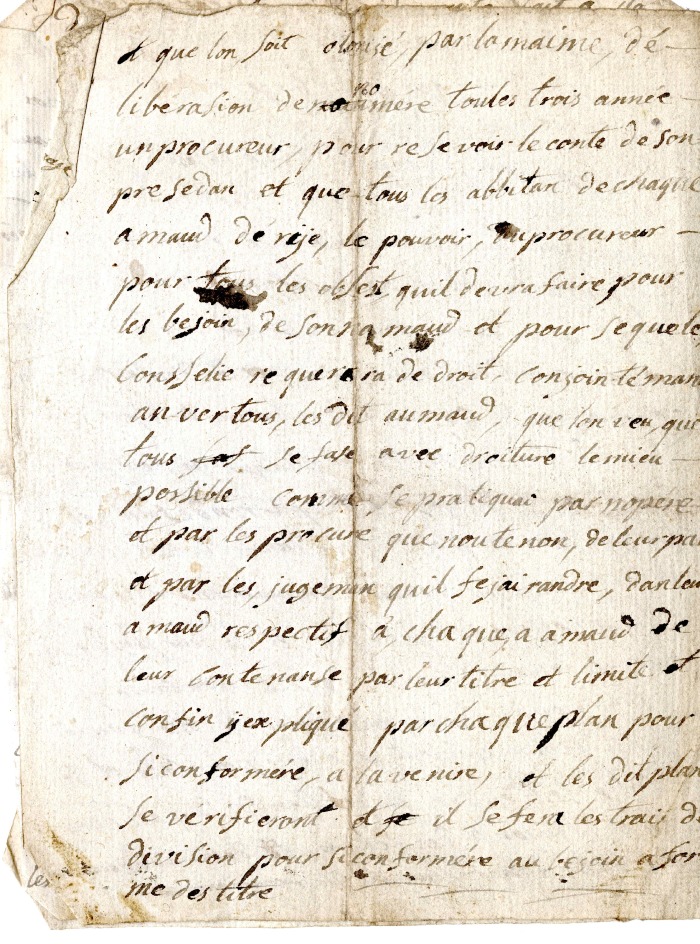 et que lon soit otorisé, par la maime, dé-
libérasion de nomére toutes trois année -
un procureur, pour resevoir le conte de son
presedan et que tous les abbitan de chaque
amaud dérije, le pouvoir, au procureur -
pour tous les obset, quil devra faire pour
les besoin, de son namaud et pour se que le
Consselie requerera de droit, conjointéman
anver tous, les dit aumaud, que lon veu, que
tous fas se fase avec droiture le mieu -
possible comme se pratiquai par nopere
et par les procure que noutenon, de leur par
et par les, jugemun quil fejai randre, dan leu
amaud respectif à, chaque, a amaud de
leur contenanse par leur titre et limite et
confin y expliqué par chaque plan pour
si conformére, a lavenire, et les dit plan
se vérifieront et se il se fera les trais de
division pour si conformére au besoin a for
me des titre
les